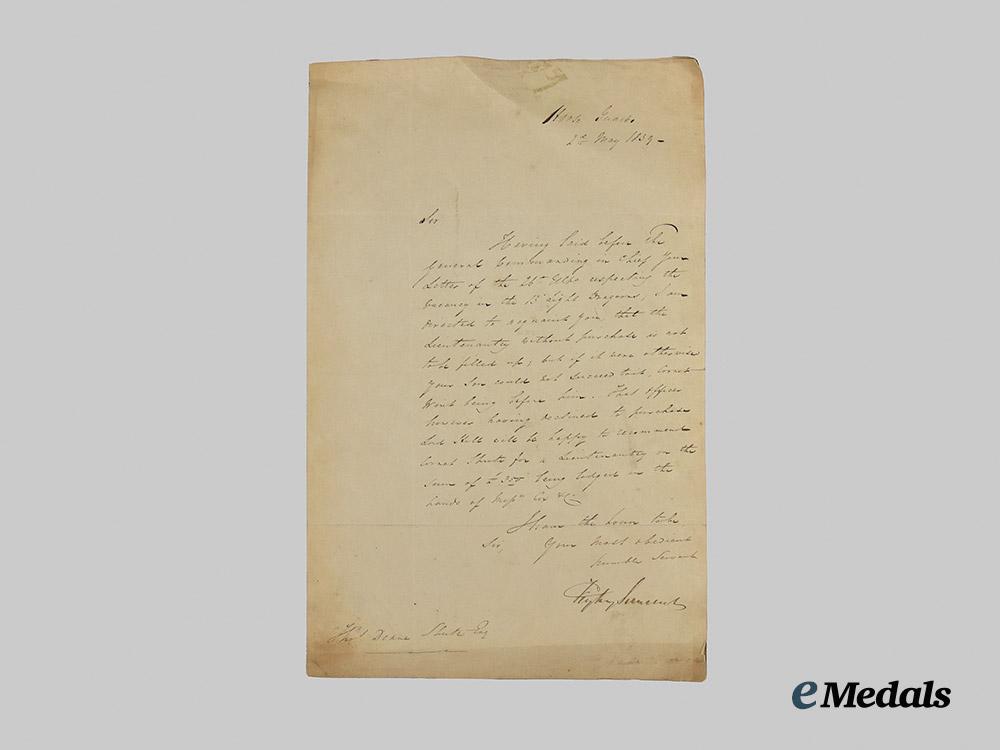 Horse Guards
2nd May 1839 -
Sir
Having laid before The
General Commanding in Chief Your
Letter of the 26th Ulto respecting the
vacancy in the 15 Light Dragoons, I am
directed to acquaint you that the
Lieutenantcy without purchase is not
to be filled up; but if it were otherwise
your Son could not succeed to it, Cornet
being before him. That officer
however having declined to purchase
Lord Hill will be happy to recommend
Cornet Shute for a Lieutenantcy on the
Sum of £ 350 being lodged in the
hands of Messrs Cox & Co
I have the honor to be
Sir, Your most obedient
humble Servant
Thos Deane Shute Esq
eMedals